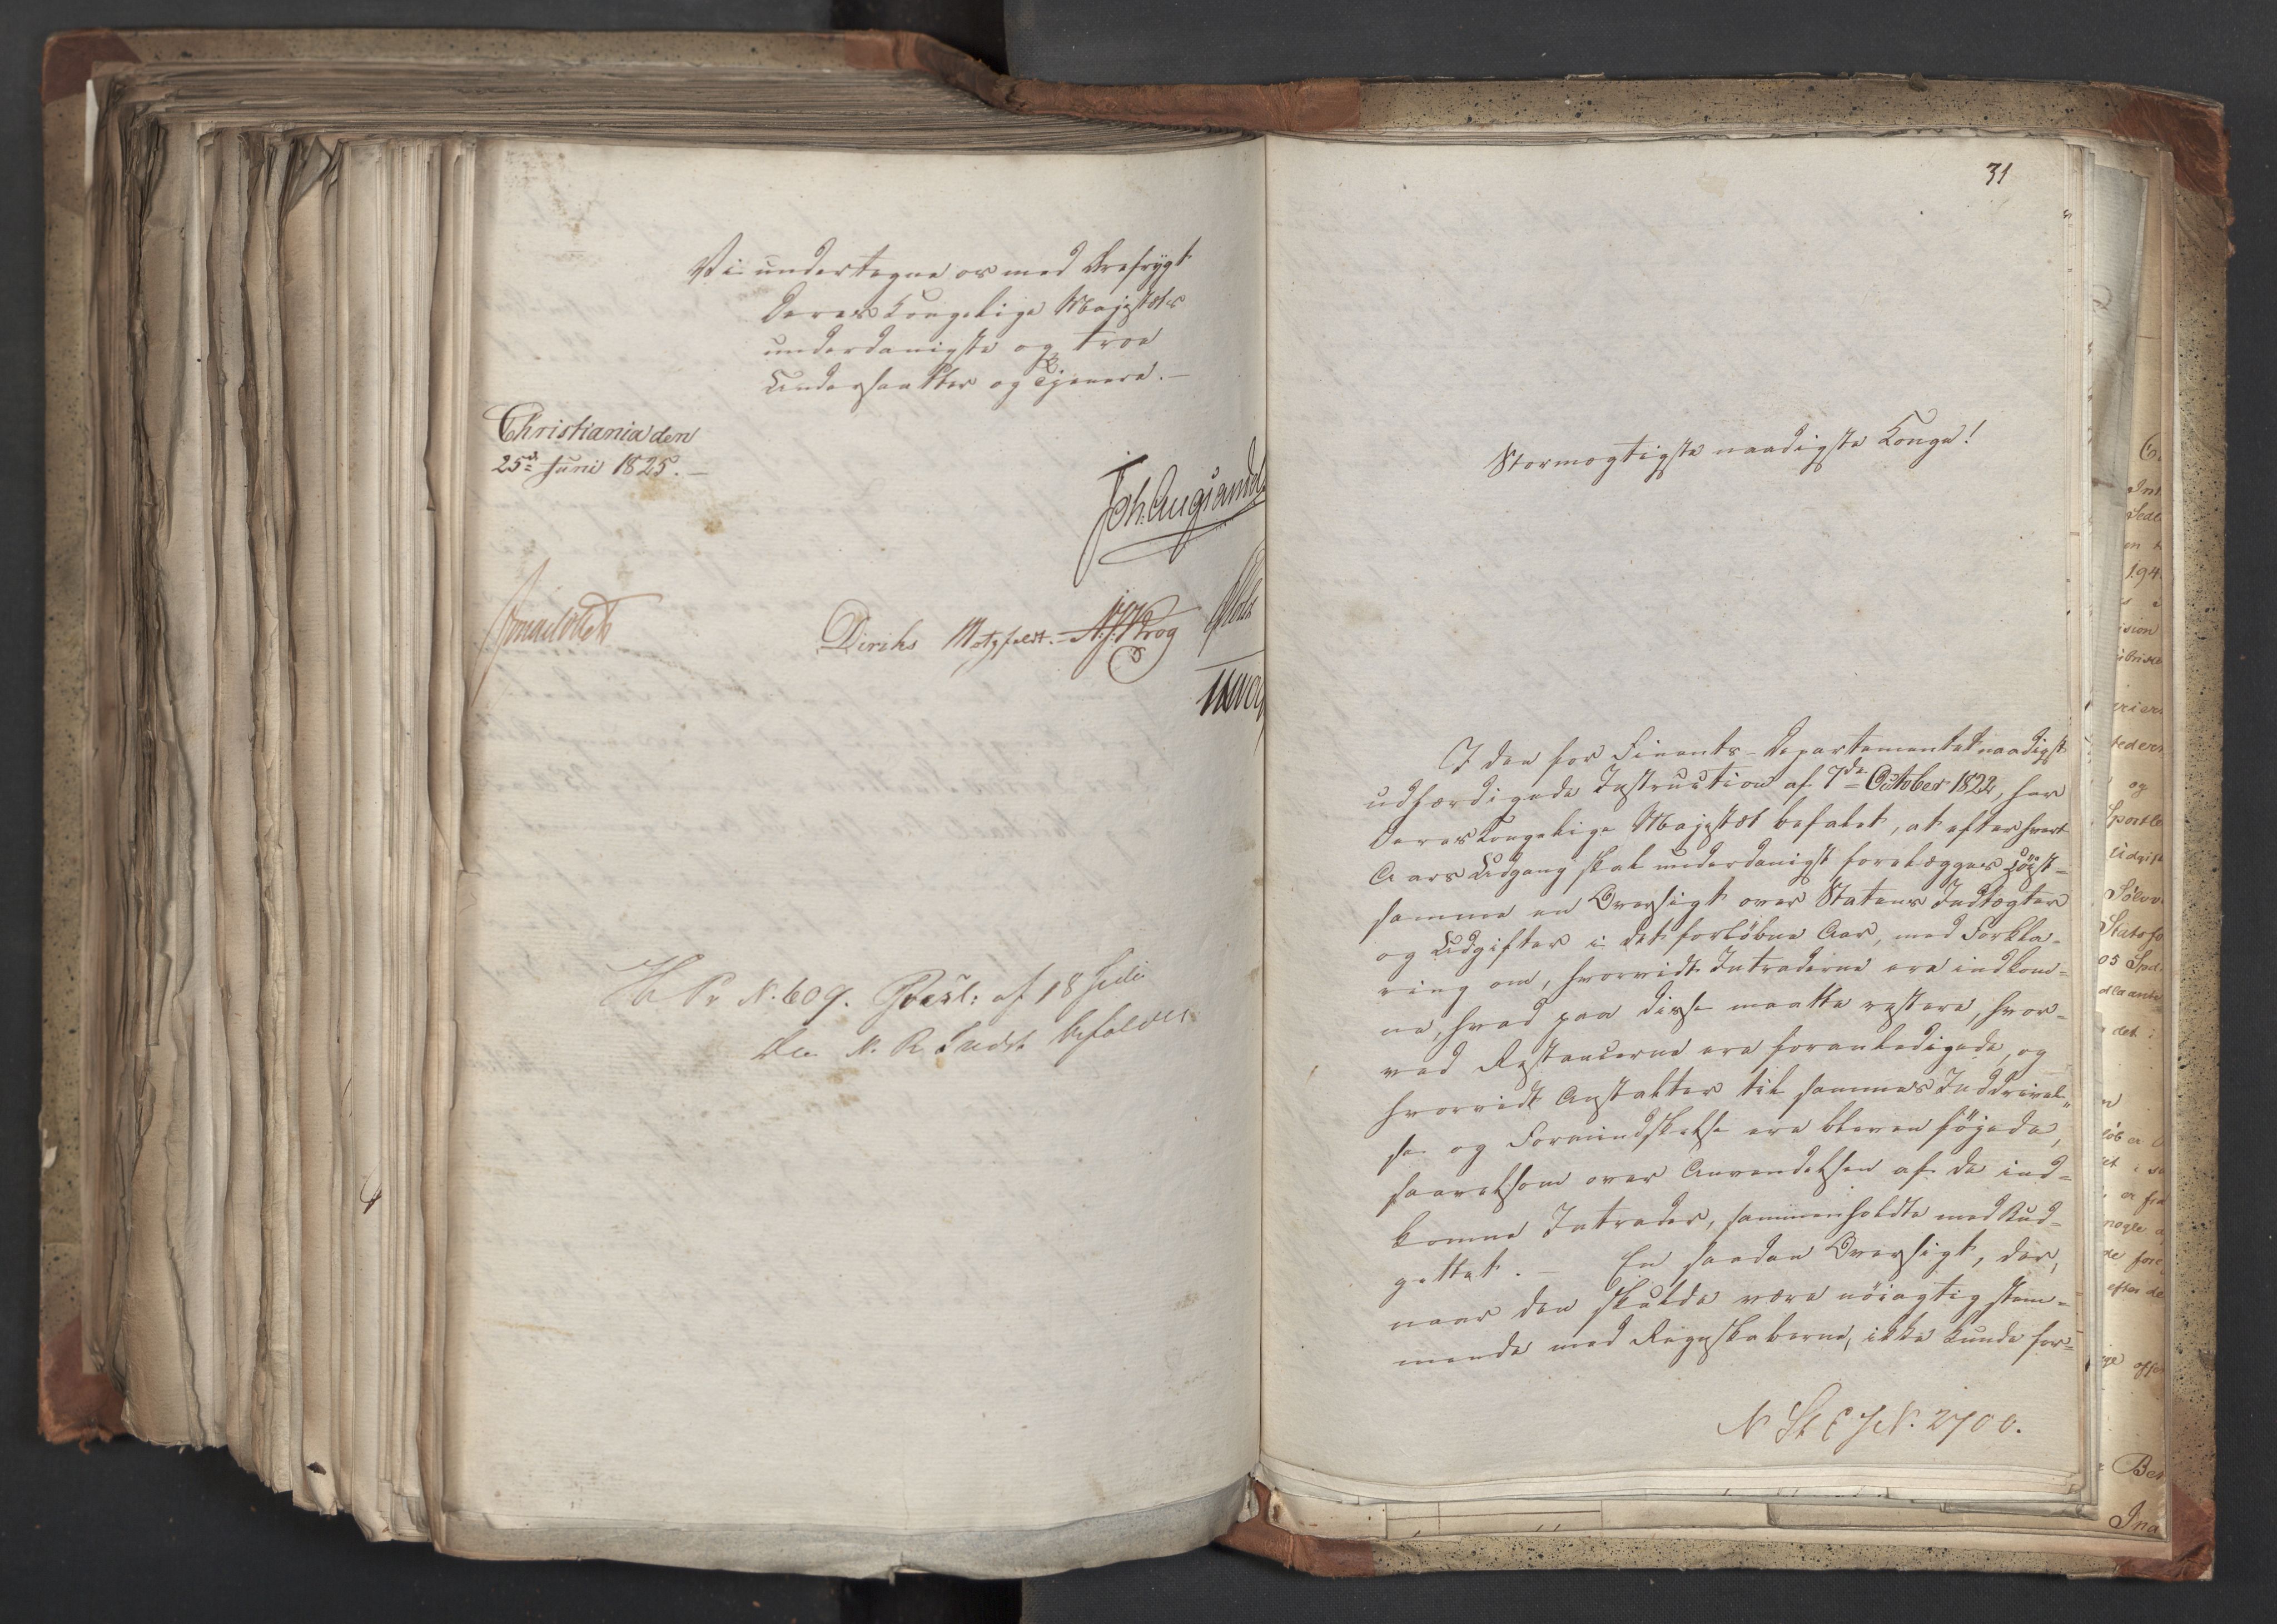 Vi undertegne os med Ærefrygt
Deres Kongelige Majestæts
underdanigste og troe
Undersaatter og Tjenere.-
Christiania den
25d Juni 1825.-
Joh. Aug Sandels
Diriks Motzfeldt. N. J. Krog
N. 609. Resl: af 18 Juli
N. R. Indst befales
31
Stormægtigste naadigste Konge!
I den for Finants-Departementet naadigst
udfærdigede Instruction af 7de October 1822, har
Deres Kongelige Majestæt befalet, at efter hvert
Aars Udgang skal underdanigst forelægges Høist-
samme en Oversigt over Statens Indtægter
og Udgifter i det forløbne Aar, med Forkla-
ring om, hvorvidt Intraderne ere indkom-
ne, hvad paa disse maatte restere, hvor-
ved Restancerne ere foranledigede, og
hvorvidt Anstalter til sammes Inddrivel-
se og Formindskelse ere bleven føjede,
saavelsom over Anvendelsen af de ind-
komne Intrader, sammenholdte med Bud-
gettet. - En saadan Oversigt, der,
naar den skulde være nøiagtig stem-
mende med Regnskaberne, ikke kunde for-
N St E J N. 2700.